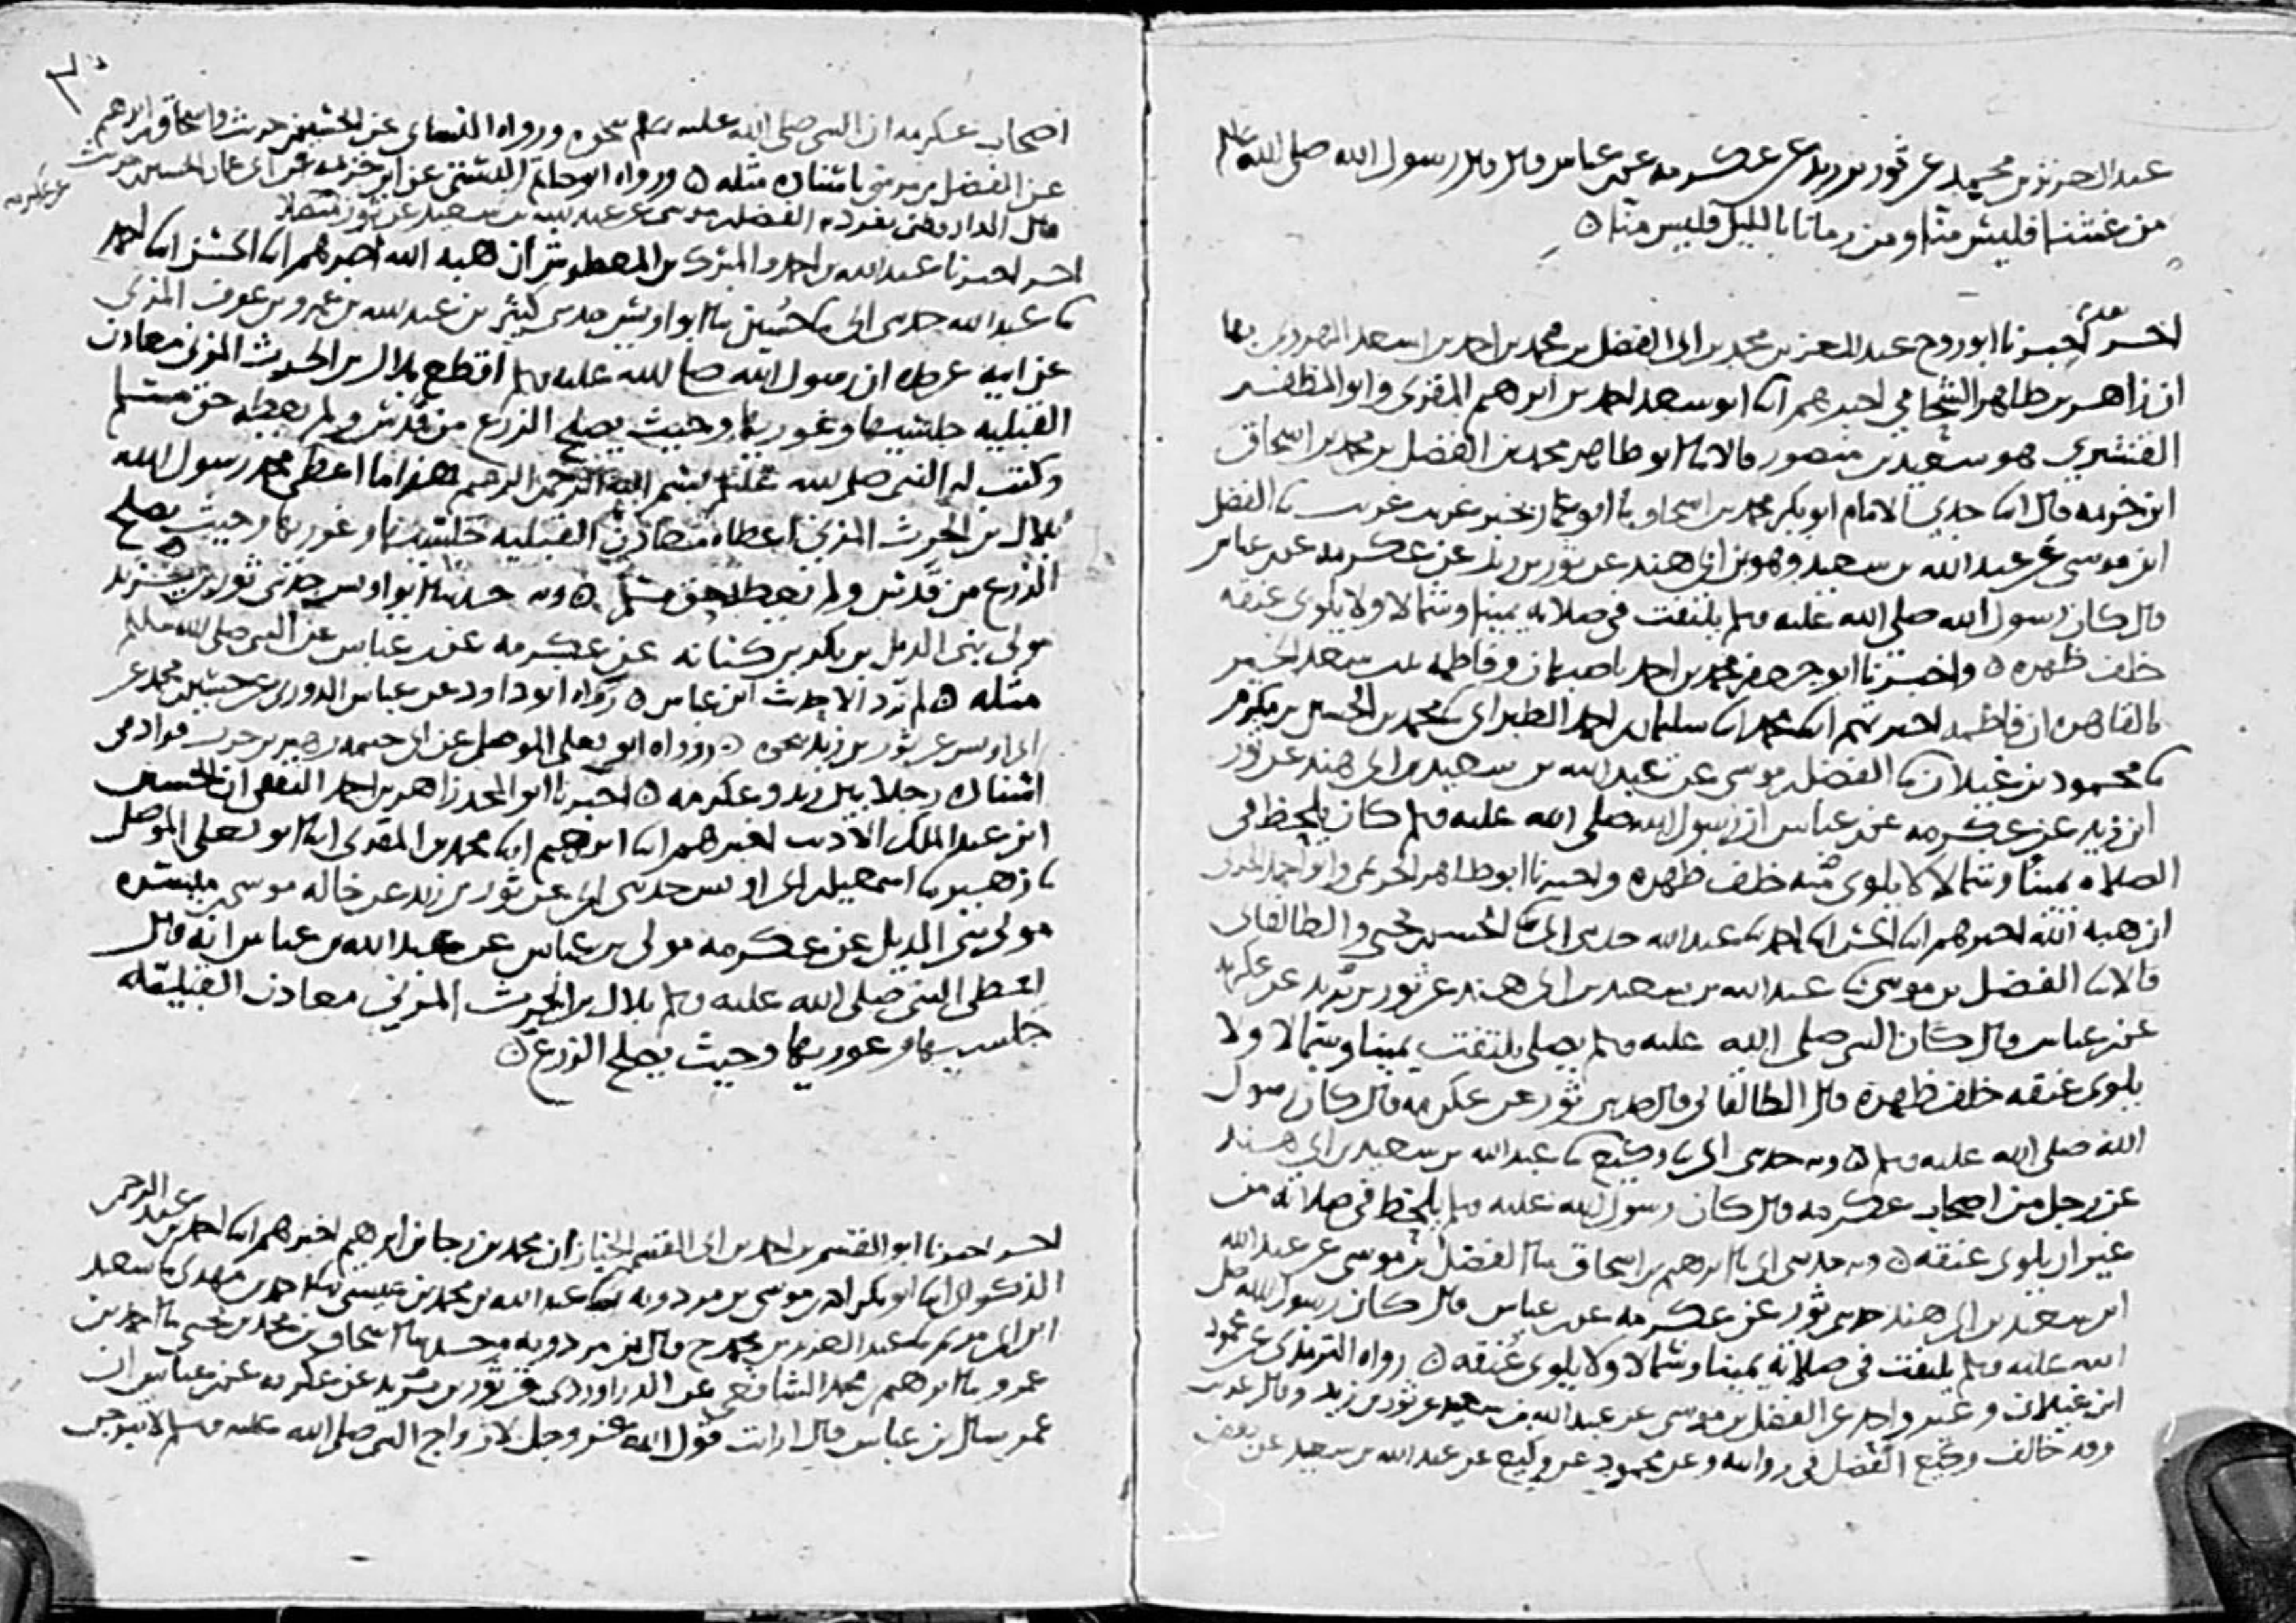 عبد العزيز بن محمد عن ثور بن زيد عن عكرمه عن ابن عباس قال قال رسول الله صلى الله عليه وسلم
من غشنا فليس منا ومن رمانا بالليل فليس منا ه
اخبرنا ابو روح عبد المعز بن محمد بن ابي الفضل بن محمد بن احمد بن اسعد الهروي بها
ان زاهر بن طاهر الشحامي اخبرهم ابنا ابو سعد احمد بن ابرهيم المقري وابو المظفر
القشيري هو سعيد بن منصور قالا ابنا ابو طاهر محمد بن الفضل بن محمد بن اسحاق
ابن خزيمه قال ابنا جدي الامام ابو بكر محمد بن اسحاق نا ابو عمار بخبر غريب غريب نا الفضل
ابن موسى عن عبد الله بن سعيد وهو بن ابي هند عن ثور بن زيد عن عكرمه عن ابن عباس
قال كان رسول الله صلى الله عليه وسلم يلتفت في صلاته يمينا وشمالا ولا يلوي عنقه
خلف ظهره ه واخبرنا ابو جعفر محمد بن احمد باصبهان وفاطمه بنت سعد الخير
بالقاهره ان فاطمه اخبرتهم ابنا محمد ابنا سليمان بن احمد الطبراني نا محمد بن الحسين بن مكرم
نا محمود بن غيلان نا الفضل بن موسى عن عبد الله بن سعيد بن ابي هند عن ثور
ابن زيد عن عكرمه عن ابن عباس ان رسول الله صلى الله عليه وسلم كان يلحظ في
الصلاه يمينا وشمالا لا يلوي عنقه خلف ظهره واخبرنا ابو طاهر الحريمي وابو احمد الحربي
ان هبه الله اخبرهم ابنا الحسن ابنا احمد نا عبد الله حدثني ابي نا الحسن بن يحيى والطالقاني
قالا نا الفضل بن موسى نا عبد الله بن سعيد بن ابي هند عن ثور بن زيد عن عكرمه
عن ابن عباس قال كان النبي صلى الله عليه وسلم يصلي يلتفت يمينا وشمالا ولا
يلوي عنقه خلف ظهره قال الطالقاني قال حدثني ثور عن عكرمه قال كان رسول
الله صلى الله عليه وسلم ه وبه حدثني ابي نا وكيع نا عبد الله بن سعيد بن ابي هند
عن رجل من اصحاب عكرمه قال كان رسول الله صلى الله عليه وسلم يلحظ في صلاته من
غير ان يلوي عنقه ه وبه حدثني ابي نا ابرهيم بن اسحاق نا الفضل بن موسى عن عبد الله
ابن سعيد بن ابي هند حدثني ثور عن عكرمه عن ابن عباس قال كان رسول الله صلى
الله عليه وسلم يلتفت في صلاته يمينا وشمالا ولا يلوي عنقه ه رواه الترمذي عن محمود
ابن غيلان وغير واحد عن الفضل بن موسى عن عبد الله بن سعيد عن ثور بن زيد وقال غريب
وقد خالف وكيع الفضل في روايته وعن محمود عن وكيع عن عبد الله بن سعيد عن بعض
اصحاب عكرمه ان النبي صلى الله عليه وسلم نحوه ورواه النسائي عن الحسين بن حريث واسحاق بن ابرهيم
عن الفضل بن موسى باسناده مثله ه ورواه ابو حاتم البستي عن ابن خزيمه عن ابي عمار الحسين بن حريث
قال الدارقطني تفرد به الفضل بن موسى عن عبد الله بن سعيد عن ثور متصلا
عن عكرمه
اخبرنا عبد الله بن احمد والمبرك بن المعطوش ان هبه الله اخبرهم ابنا الحسن ابنا احمد
نا عبد الله حدثني ابي نا حسين نا ابو اويس حدثني كثير بن عبد الله بن عمرو بن عوف المزني
عن ابيه عن جده ان رسول الله صلى الله عليه وسلم اقطع بلال بن الحرث المزني معادن
القبليه جلسيها وغوريها وحيث يصلح الزرع من قدس ولم يعطه حق مسلم
وكتب له النبي صلى الله عليه وسلم بسم الله الرحمن الرحيم هذا ما اعطى محمد رسول الله
بلال بن الحرث المزني اعطاه معادن القبليه جلسيها وغوريها وحيث يصلح
الزرع من قدس ولم يعطه حق مسلم ه وبه حدثنا ابو اويس حدثني ثور بن زيد
مولى بني الديل بن بكر بن كنانه عن عكرمه عن ابن عباس عن النبي صلى الله عليه وسلم
مثله ه لم يرد الا حديث ابن عباس ه رواه ابو داود عن عباس الدوري عن حسين بن محمد عن
ابي اويس عن ثور بن زيد نحوه ه ورواه ابو يعلى الموصلي عن ابي خيثمه زهير بن حرب فزاد في
اسناده رجلا بين زيد وعكرمه ه اخبرنا ابو المجد زاهر بن احمد الثقفي ان الحسين
ابن عبد الملك الاديب اخبرهم ابنا ابرهيم ابنا محمد بن المقري ابنا ابو يعلى الموصلي
نا زهير نا اسمعيل بن ابي اويس حدثني ابي عن ثور بن زيد عن خاله موسى بن ميسره
مولى بني الديل عن عكرمه مولى بن عباس عن عبد الله بن عباس انه قال
اعطى النبي صلى الله عليه وسلم بلال بن الحرث المزني معادن القبليه
جلسيها وغوريها وحيث يصلح الزرع ه
اخبرنا ابو القسم بن احمد بن ابي القسم الخباز ان محمد بن رجا بن ابرهيم اخبرهم ابنا احمد بن عبد الرحمن
الذكواني ابنا ابو بكر احمد بن موسى بن مردويه نا عبد الله بن محمد بن عيسى نا احمد بن مهدي نا سعيد
ابن ابي مريم نا عبد العزيز بن محمد ح قال ابن مردويه وحدثنا اسحاق بن محمد بن يحيى نا احمد بن
عمرو نا ابرهيم بن محمد الشافعي عن الدراوردي عن ثور بن زيد عن عكرمه عن ابن عباس ان
عمر سال بن عباس قال ارايت قول الله عز وجل لازواج النبي صلى الله عليه وسلم لا تبرجن